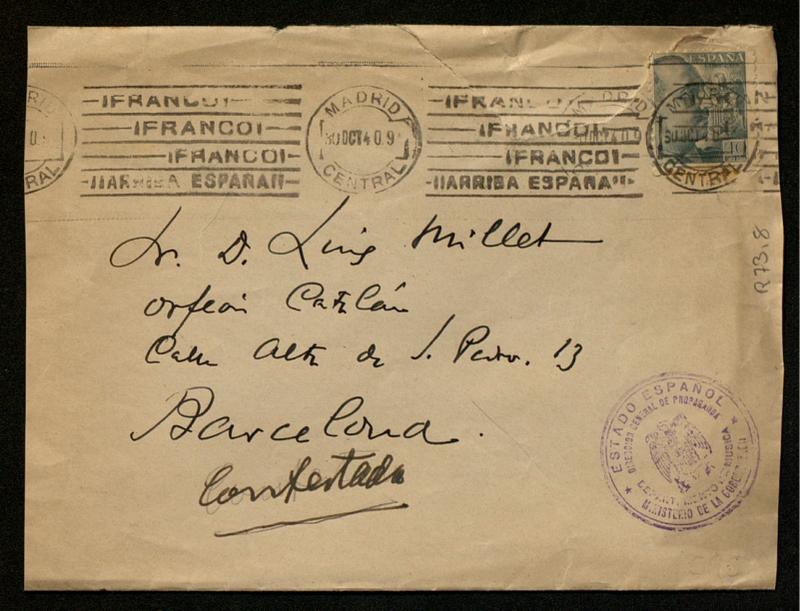 ¡FRANCO! ¡FRANCO!
¡FRANCO! ¡FRANCO!
¡FRANCO! ¡FRANCO!
¡¡ARRIBA ESPAÑA!! ¡¡ARRIBA ESPAÑA!!
MADRID
30 OCT 40 9
CENTRAL
ESPAÑA
40
MADRID
30 OCT 40
CENTRAL
Sr. D. Luis Millet
Orfeón Catalán
Calle Alta de S. Pedro. 13
Barcelona.
Contestada
R73.8
ESTADO ESPAÑOL
DIRECCION GENERAL DE PROPAGANDA
DEPARTAMENTO DE MUSICA
MINISTERIO DE LA GOBERNACION